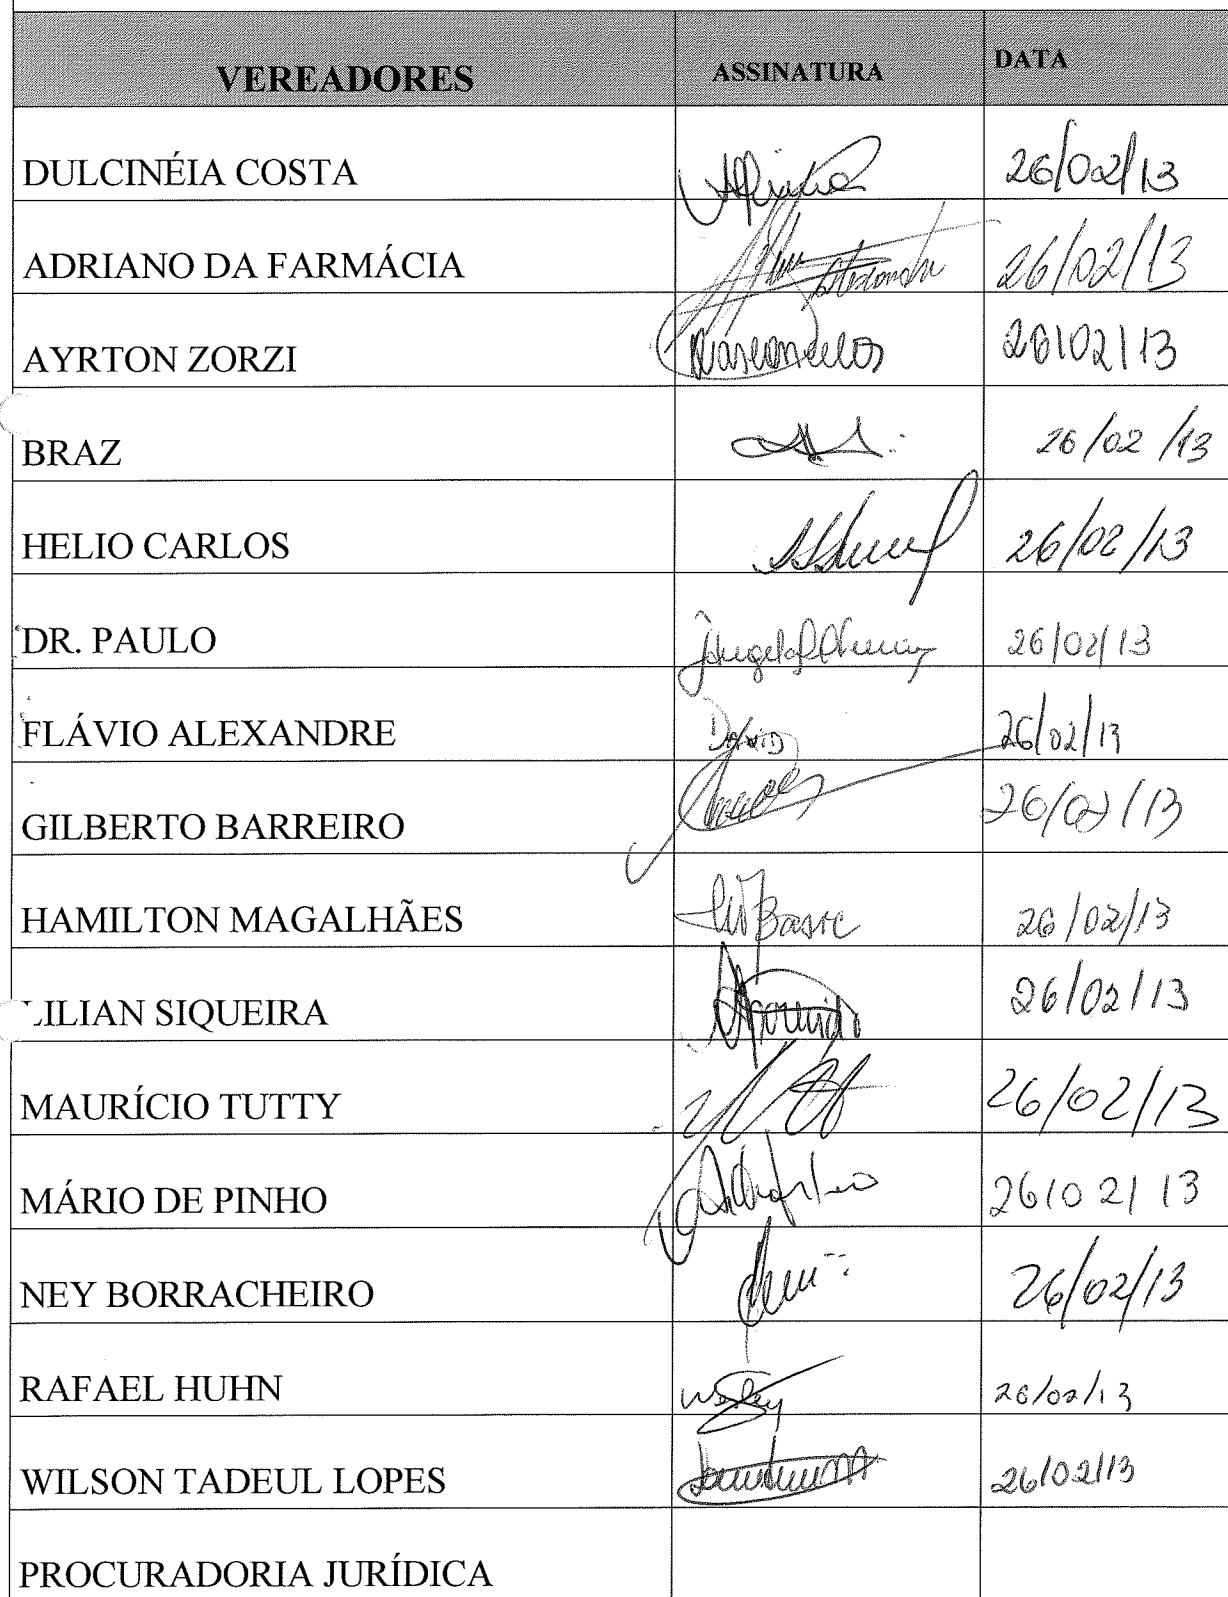 VEREADORES ASSINATURA DATA
DULCINÉIA COSTA 26/02/13
ADRIANO DA FARMÁCIA 26/02/13
AYRTON ZORZI Vasconcelos 26/02/13
BRAZ 26/02/13
HELIO CARLOS 26/02/13
DR. PAULO 26/02/13
FLÁVIO ALEXANDRE DAVID 26/02/13
GILBERTO BARREIRO 26/02/13
HAMILTON MAGALHÃES 26/02/13
LILIAN SIQUEIRA 26/02/13
MAURÍCIO TUTTY 26/02/13
MÁRIO DE PINHO 26/02/13
NEY BORRACHEIRO 26/02/13
RAFAEL HUHN 26/02/13
WILSON TADEUL LOPES 26/02/13
PROCURADORIA JURÍDICA